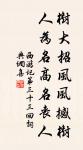 樹大招風風撼樹
人為名高名喪人
西游記第三十三回詞
吳價熹